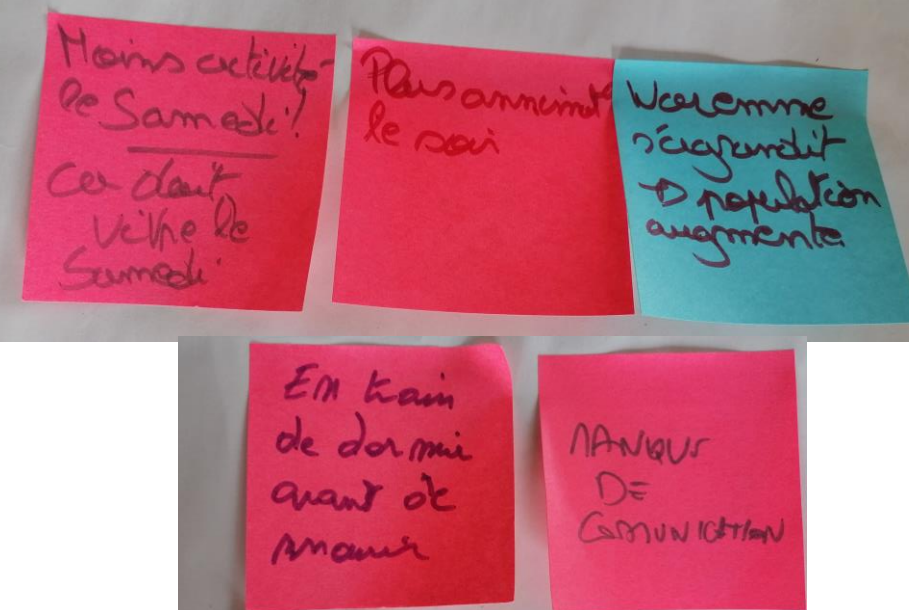 Moins activité
le Samedi!
ca doit
vivre le
Samedi
Plus
le soir
Waremme
s'agrandit
→ population
augmente
En train
de dormir
avant de
mourir
MANQUE
DE
COMUNICATION